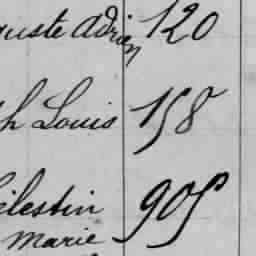 guste Adrien 120
h Louis 158
élestin 905
Marie